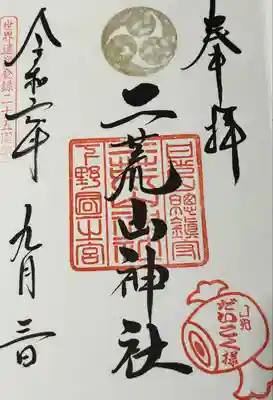 奉拝
日光山總鎮守
二荒山神社
下野國一之宮
令和六年
九月三日
世界遺産登録二十五周年
日光
だいこく様